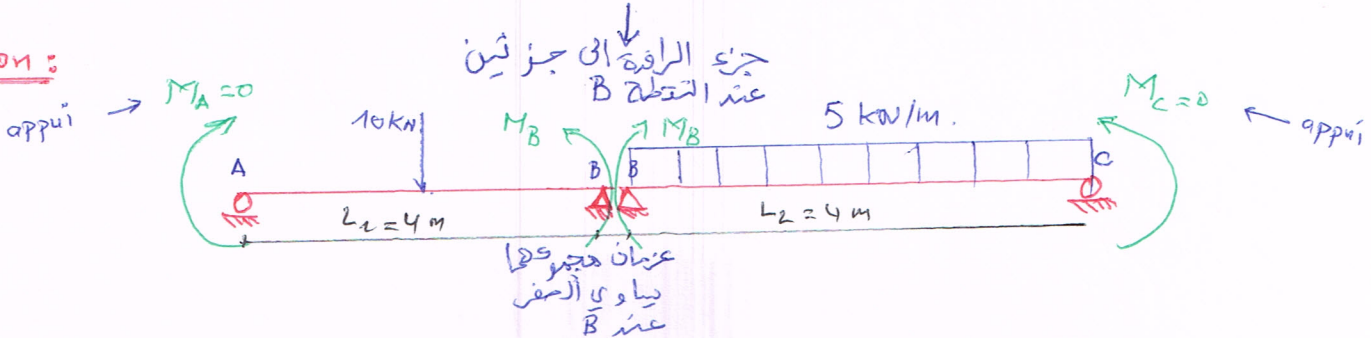 on :
جزء الرافدة الى جزئين
عند النقطة B
appui
M_A = 0
10 kN
M_B
M_B
5 kN/m.
M_C = 0
appui
A
B
B
C
L_1 = 4 m
L_2 = 4 m
عزمان مجموعهما
يساوي الصفر
عند B